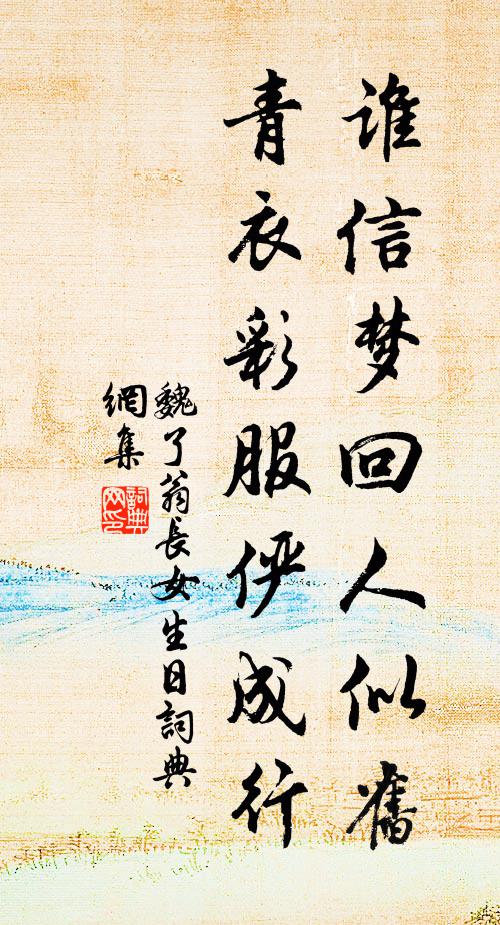 谁信梦回人似舊
青衣彩服俨成行
魏了翁長女生日詞典
網集
詞典
网印